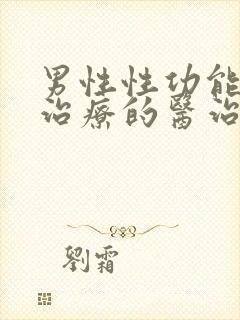 男性性功能
治療的醫治
劉霜